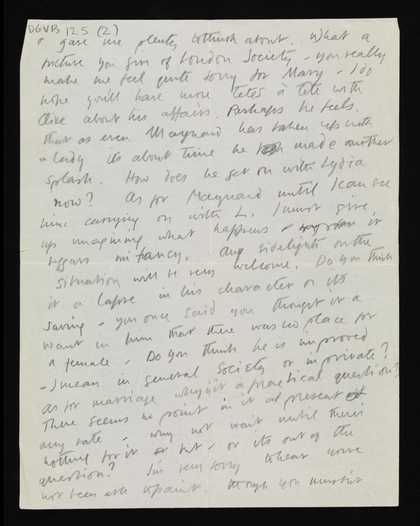 DGVB 125 (2)
& gave me plenty to think about. What a
picture you give of London Society - you really
make me feel quite sorry for Mary - I do
hope you'll have more tetes à tete with
Clive about his affairs. Perhaps he feels
that as even Maynard has taken up with
a lady its about time he made another
splash. How does he get on with Lydia
now? As for Maynard until I can see
him carrying on with L. I must give
up imagining what happens - it
beggars my fancy. Any sidelights on the
situation will be very welcome. Do you think
it a lapse in his character or its
saving - you once said you thought it a
want in him that there was no place for
a female - Do you think he is improved
- I mean in general Society or in private?
As for marriage why is it a practical question?
There seems no point in it at present at
any rate - why not wait until there's
nothing for it but - or its out of the
question? I'm very sorry to hear you've
not been able to paint. though you mustn't